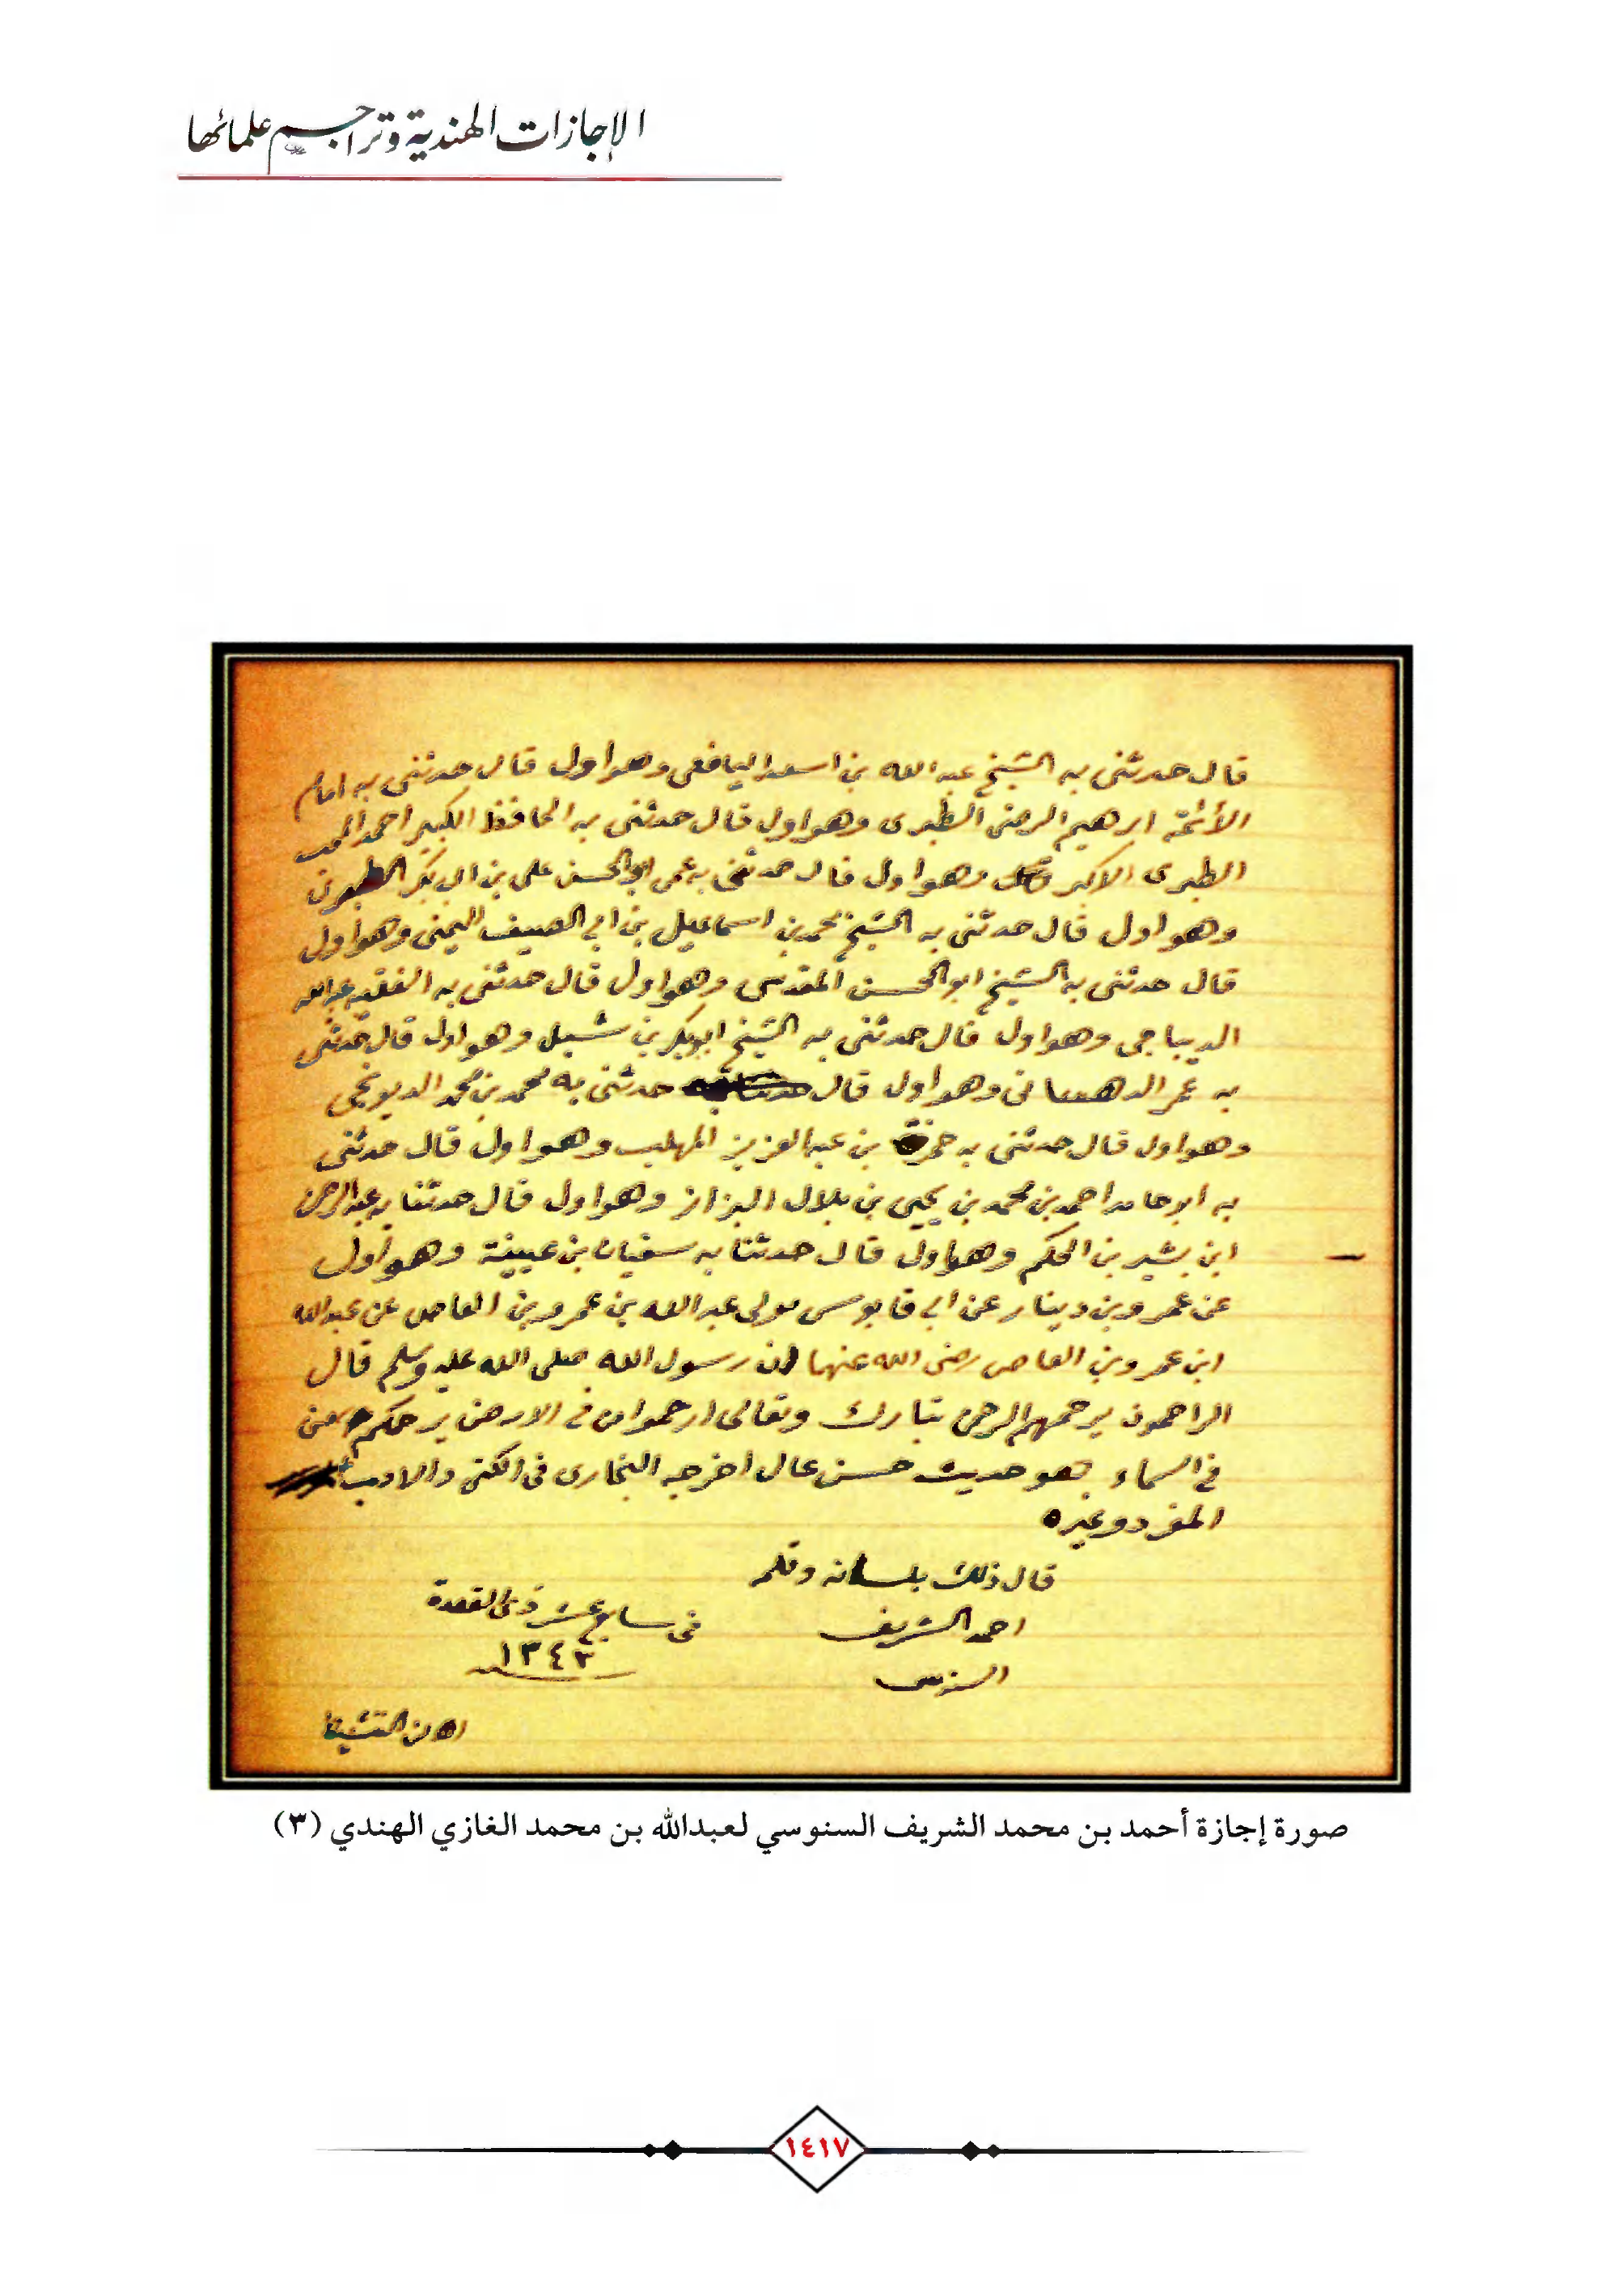 الإجازات الهندية وتراجم علمائها
قال حدثنى به الشيخ عبد الله بن اسعد اليافعى وهو اول قال حدثنى به امام
الأئمة ابرهيم الرضى الطبرى وهو اول قال حدثنى به الحافظ الكبير احمد المحب
الطبرى الاكبر وهو اول قال حدثنى به عمى ابو الحسن على بن ابى بكر الطبرى
وهو اول قال حدثنى به الشيخ محمد بن اسماعيل بن ابي الصيف اليمنى وهو اول
قال حدثنى به الشيخ ابو الحسن المقدسى وهو اول قال حدثنى به الفقيه عبد الله
الديباجى وهو اول قال حدثنى به الشيخ ابو بكر بن شبل وهو اول قال حدثنى
به عمر وهو اول قال حدثنى به محمد بن محمد
وهو اول قال حدثنى به حمزة بن عبد العزيز المهلب وهو اول قال حدثنى
به ابو حامد احمد بن محمد بن يحيى بن بلال البزاز وهو اول قال حدثنا به عبد الرحمن
ابن بشير بن الحكم وهو اول قال حدثنا به سفيان بن عيينة وهو اول
عن عمرو بن دينار عن ابي قابوس مولى عبد الله بن عمرو بن العاص عن عبد الله
ابن عمرو بن العاص رضى الله عنهما ان رسول الله صلى الله عليه وسلم قال
الراحمون يرحمهم الرحمن تبارك وتعالى ارحموا من في الارض يرحمكم من
في السماء حديث حسن عال اخرجه البخارى فى الكنى والادب
المفرد وغيره
قال ذلك بلسانه وقلمه
احمد الشريف
السنوسى
فى سابع عشر ذى القعدة
١٣٤٣
صورة إجازة أحمد بن محمد الشريف السنوسي لعبدالله بن محمد الغازي الهندي (٣)
١٤١٧